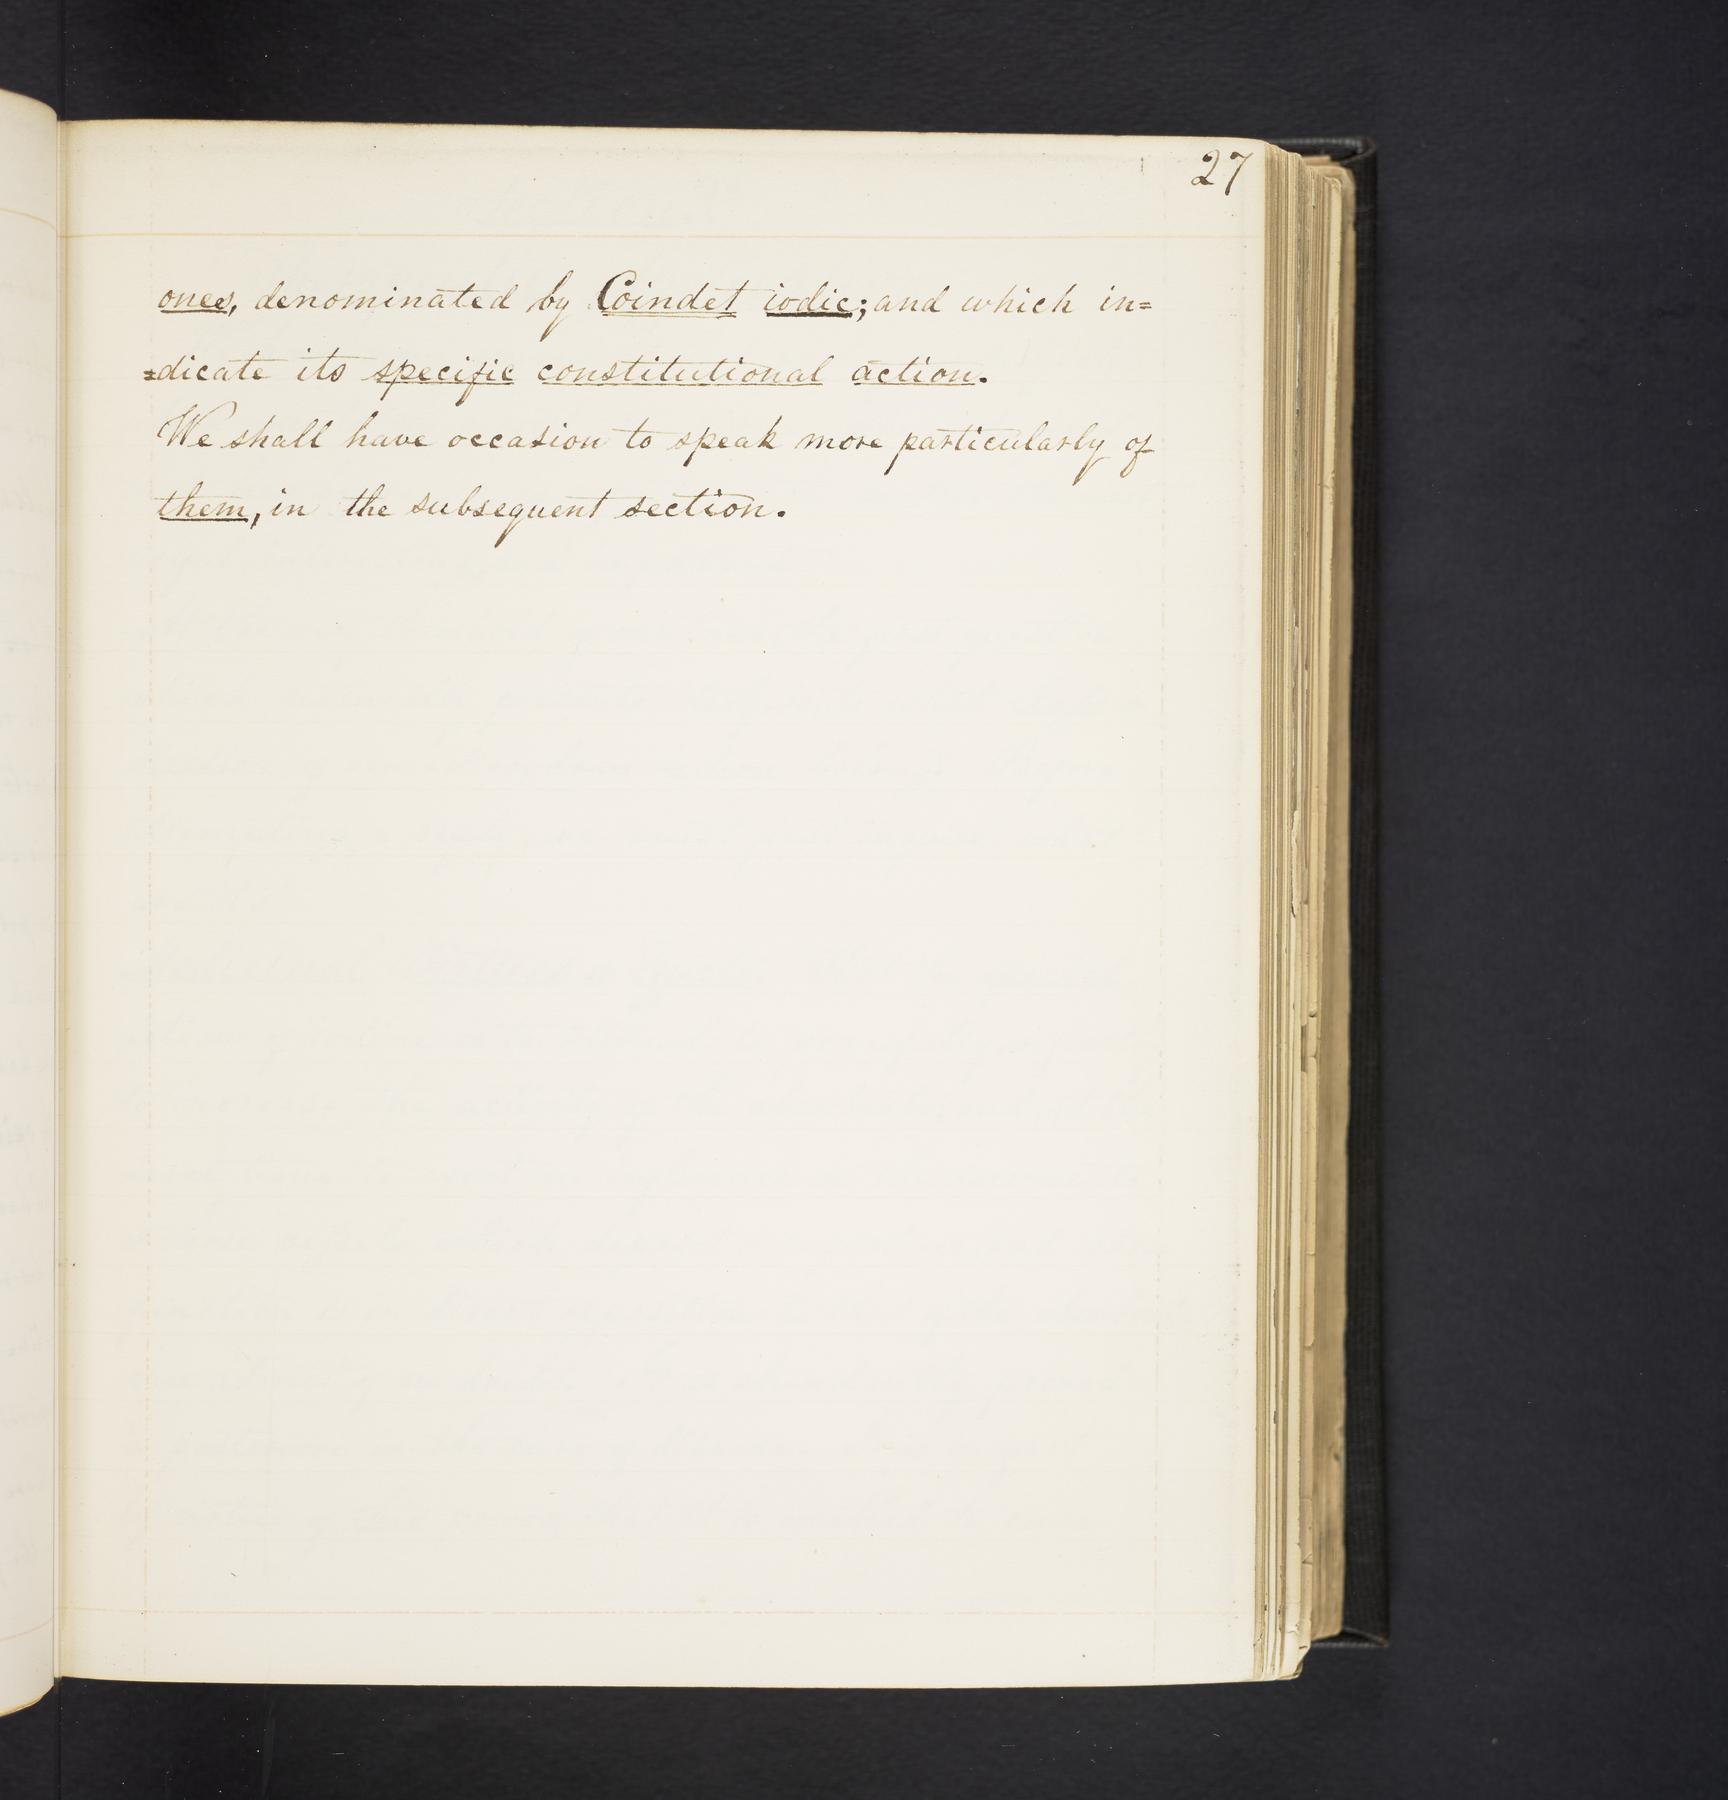 27
ones, denominated by Coindet iodic; and which in=
=dicate its specific constitutional action.
We shall have occasion to speak more particularly of
them, in the subsequent section.